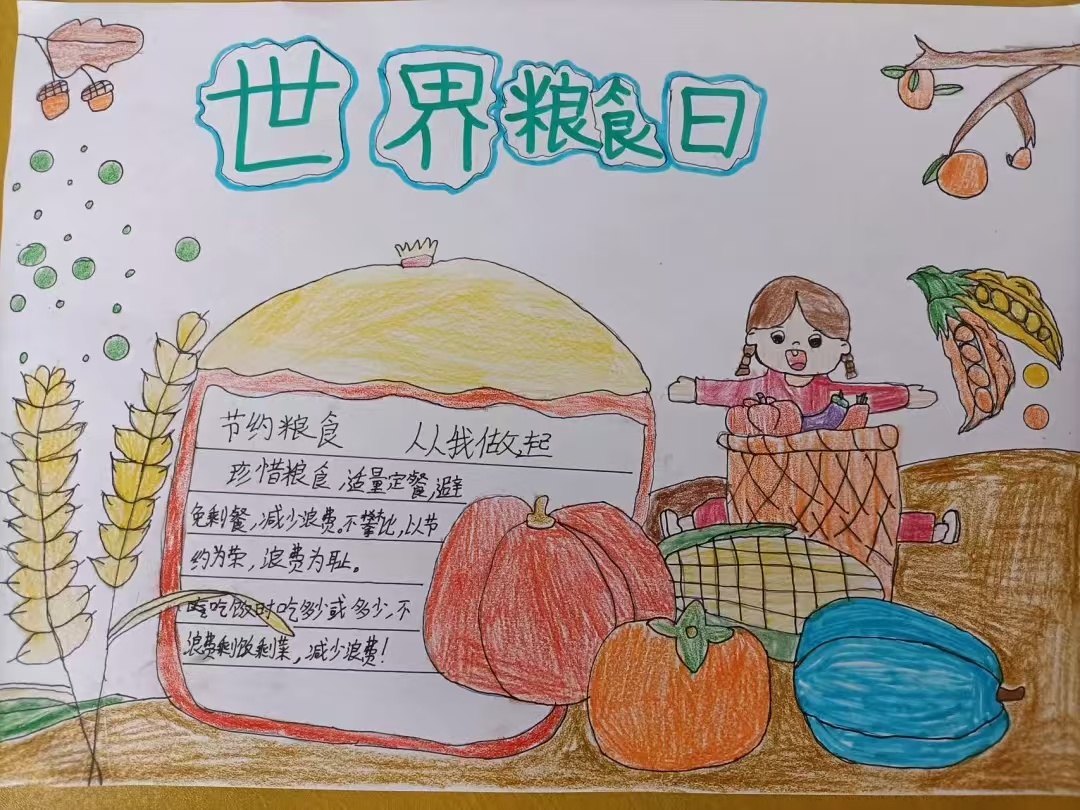 世界粮食日
节约粮食 从我做起
珍惜粮食,适量定餐,避
免剩餐,减少浪费。不攀比,以节
约为荣,浪费为耻。
吃饭时吃多少或多少,不
浪费剩饭剩菜,减少浪费!